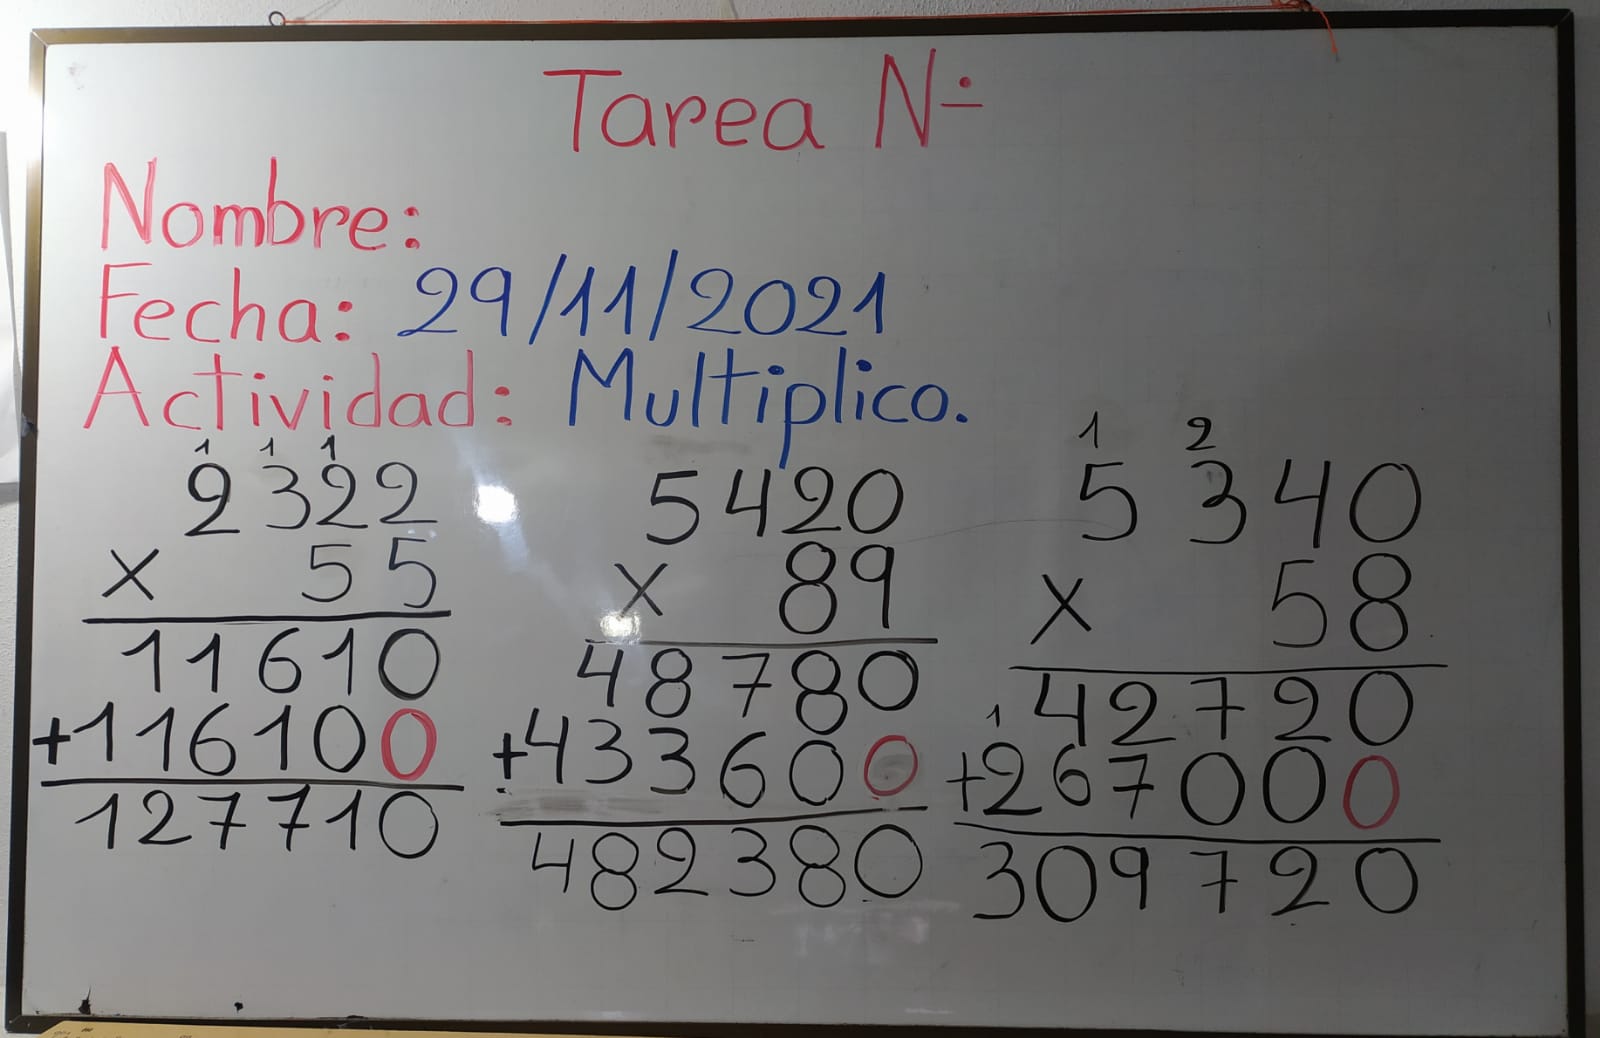 Tarea N°
Nombre:
Fecha: 29/11/2021
Actividad: Multiplico.
1 1 1
2322
x 55
11610
+116100
127710
5420
x 89
48780
+433600
482380
1 2
5340
x 58
42720
1
+267000
309720